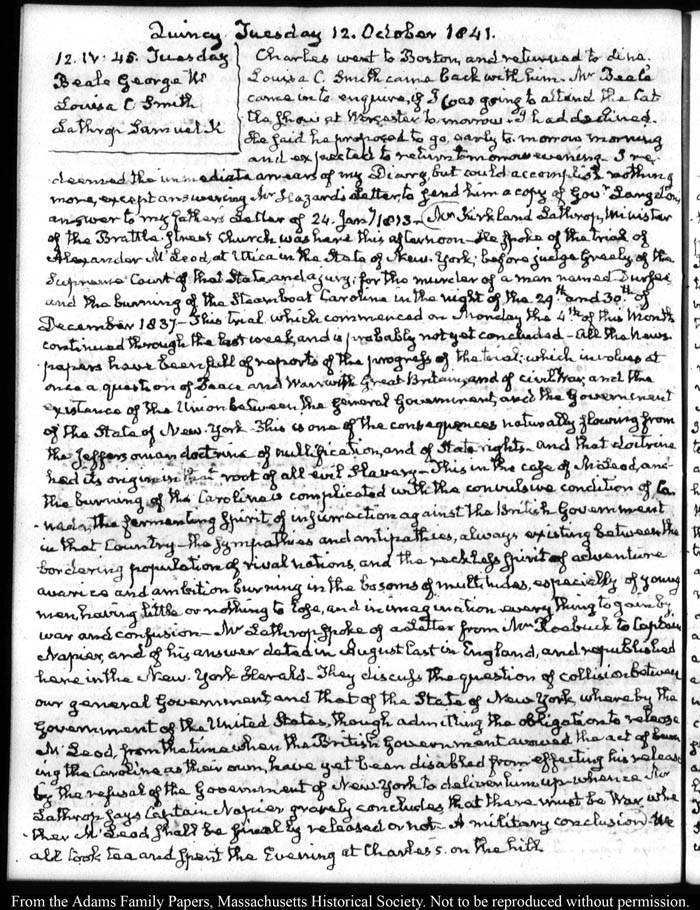 Quincy. Tuesday 12. October 1841.
12. IV: 45. Tuesday
Beale George W.
Louisa C Smith
Lathrop Samuel K
Charles went to Boston, and returned to dine.
Louisa C. Smith came back with him. Mr Beale
came in to enquire, if I was going to attend the Cat
tle Show at Worcester to-morrow. I had declined.
He said he proposed to go, early to-morrow morning
and expected to return tomorrow evening. I re-
deemed the immediate arrears of my Diary, but could accomplish nothing
more, except answering Mr Hazard's Letter, to send him a copy of Govr Langdon's
answer to my father's Letter of 24. Jany 1813— Mr Kirkland Lathrop, Minister
of the Brattle-street Church was here this afternoon— He spoke of the trial of
Alexander McLeod, at Utica in the State of New-York, before judge Greely of the
Supreme Court of that State, and a jury, for the murder of a man named Durfee
and the burning of the Steamboat Caroline in the night of the 29th and 30th of
December 1837— This trial which commenced on Monday the 4th of this Month
continued through the last week, and is probably not yet concluded— All the News
papers have been full of reports of the progress of the trial; which involves at
once a question of Peace and War with Great Britain, and of civil War, and the
existence of the Union between the General Government, and the Government
of the State of New-York. This is one of the consequences naturally flowing from
the Jeffersonian doctrine of nullification, and of State rights— and that doctrine
had its origin in that root of all evil Slavery— This in the case of McLeod, and
the burning of the Caroline is complicated with the convulsive condition of Ca-
nada, the fermenting spirit of insurrection against the British Government
in that Country— the sympathies and antipathies, always existing between the
bordering population of rival nations, and the reckless spirit of adventure
avarice and ambition burning in the bosoms of multitudes, especially of young
men, having little or nothing to lose, and in imagination every thing to gain by
war and confusion— Mr Lathrop spoke of a Letter from Mr Roebuck to Captain
Napier, and of his answer dated in August last in England, and republished
here in the New-York Herald. They discuss the question of collision between
our general Government, and that of the State of New York, whereby the
Government of the United States, though admitting the obligation to release
McLeod, from the time when the British Government avowed the act of burn
ing the Caroline as their own, have yet been disabled from effecting his release
by the refusal of the Government of New York to deliver him up— whence Mr
Lathrop says Captain Napier gravely concludes that there must be War, whe
ther McLeod shall be finally released or not— A military conclusion. We
all took tea and spent the Evening at Charles's. on the hill.
From the Adams Family Papers, Massachusetts Historical Society. Not to be reproduced without permission.